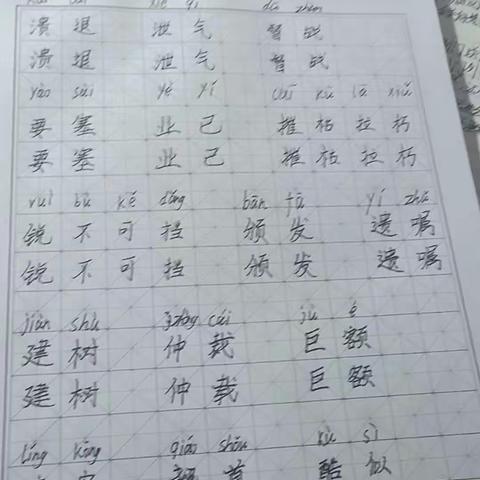 xiè qì dū zhàn
溃退 泄气 督战
溃退 泄气 督战
yào sài yè yǐ cuī kū lā xiǔ
要塞 业已 摧枯拉朽
要塞 业已 摧枯拉朽
ruì bù kě dǎng bān fā yí zhǔ
锐不可挡 颁发 遗嘱
锐不可挡 颁发 遗嘱
jiàn shù zhòng cái jù é
建树 仲裁 巨额
建树 仲裁 巨额
líng kōng qiáo shǒu kù sì
酷似